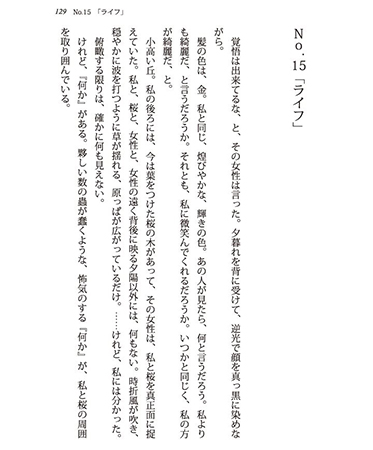 129 No.15 「ライフ」
No.15「ライフ」
覚悟は出来てるな、と、その女性は言った。夕暮れを背に受けて、逆光で顔を真っ黒に染めな
がら。
髪の色は、金。私と同じ、煌びやかな、輝きの色。あの人が見たら、何と言うだろう。私より
も綺麗だ、と言うだろうか。それとも、私に微笑んでくれるだろうか。いつかと同じく、私の方
が綺麗だ、と。
小高い丘。私の後ろには、今は葉をつけた桜の木があって、その女性は、私と桜を真正面に捉
えていた。私と、桜と、女性と、女性の遠く背後に映る夕陽以外には、何もない。時折風が吹き、
穏やかに波を打つように草が揺れる、原っぱが広がっているだけ。……けれど、私には分かった。
俯瞰する限りは、確かに何も見えない。
けれど、『何か』がある。夥しい数の蟲が蠢くような、怖気のする『何か』が、私と桜の周囲
を取り囲んでいる。